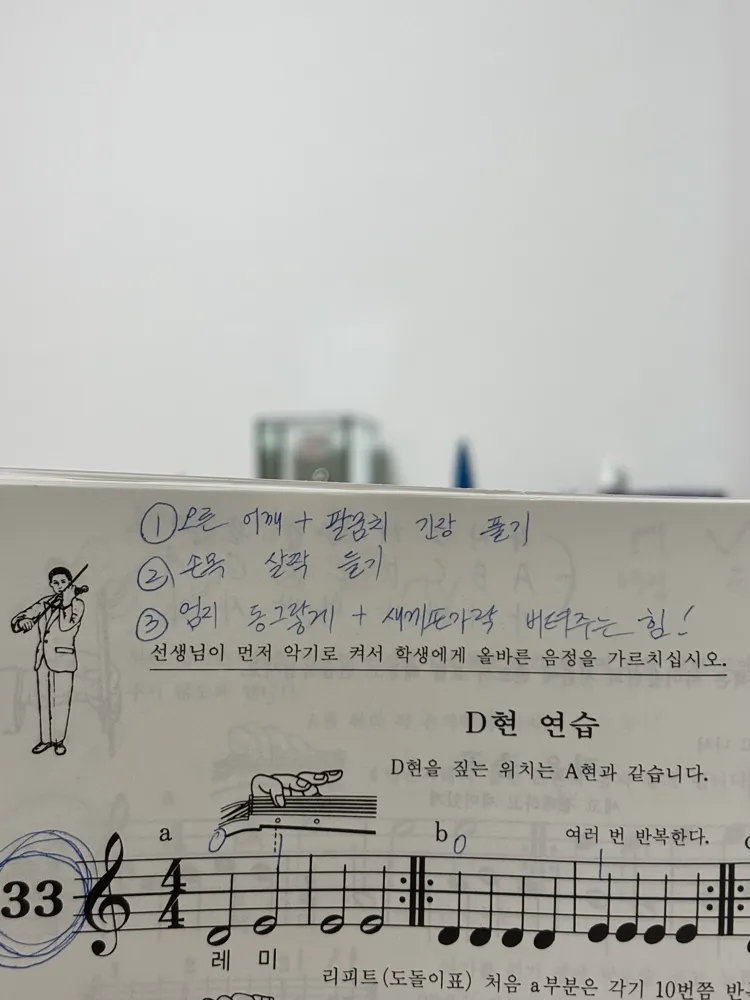 ① 오른 어깨 + 팔꿈치 긴장 풀기
② 손목 살짝 들기
③ 엄지 동그랗게 + 새끼손가락 버텨주는 힘!
선생님이 먼저 악기로 켜서 학생에게 올바른 음정을 가르치십시오.
D현 연습
D현을 짚는 위치는 A현과 같습니다.
a
b
여러 번 반복한다.
0 1
0 1
33
4
4
레 미
리피트(도돌이표) 처음 a부분은 각기 10번쯤 반